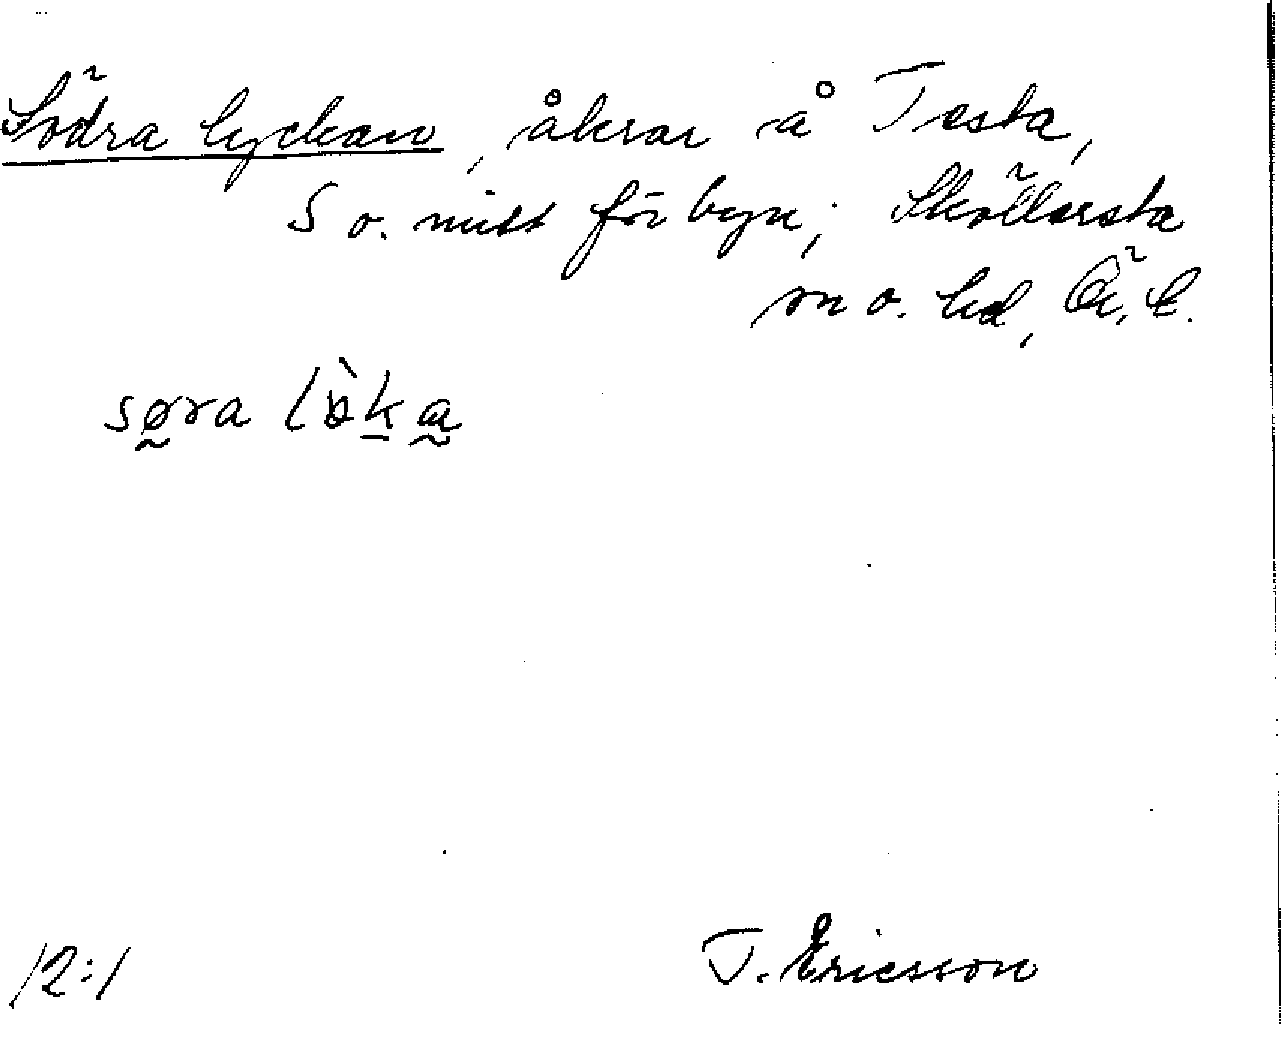 Södra lyckan, åkrar å Testa,
S o. mitt för byn; Sköllersta
sn o. hd, Ö. L.
søra lòka
12:1
T. Ericsson